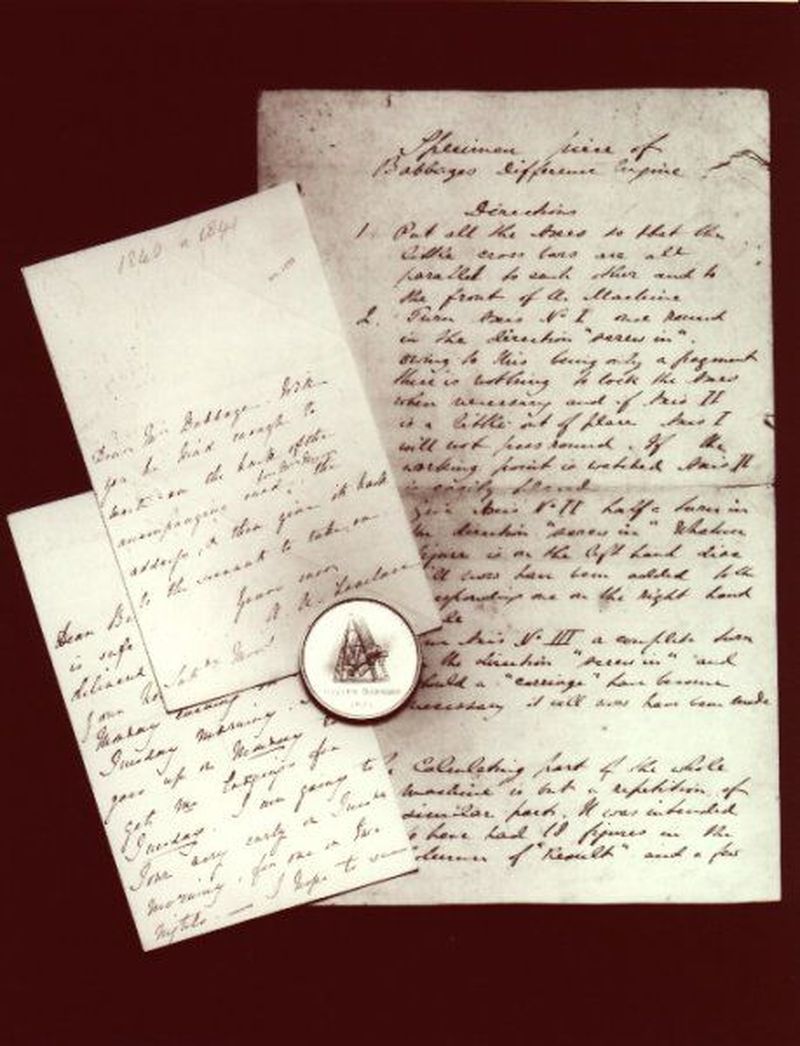 Specimen piece of
Babbages Difference Engine
Directions
1. Put all the Axes so that the
little cross bars are all
parallel to each other and to
the front of the Machine
2. Turn Axis No I one round
in the direction "screw in".
owing to this being only a fragment
there is nothing to lock the Axes
when necessary and if Axis II
is a little out of place Axis I
will not pass round. If the
working point is watched Axis II
is easily placed
Give Axis No II half a turn in
the direction "screw in" Whatever
figure is on the left hand disc
will now have been added to the
corresponding one on the right hand
Axis No III a complete turn
the direction "screw in" and
should a "carriage" have become
necessary it will now have been made
Calculating part of the whole
machine is but a repetition of
similar parts. It was intended
to have had 18 figures in the
column of "Result" and a few
1840 or 1841
Dear Mr Babbage. Will
you be kind enough to
mark on the back of the
accompanying card, the
address, & then give it back
to the servant to take on
Yours ever
A. A. Lovelace
Dear B
is safe
delivered
Monday Evening
Tuesday morning.
goes up on Monday to
get me lodgings for
Tuesday. I am going to
very early on Tuesday
morning, for one or two
nights. — I hope to